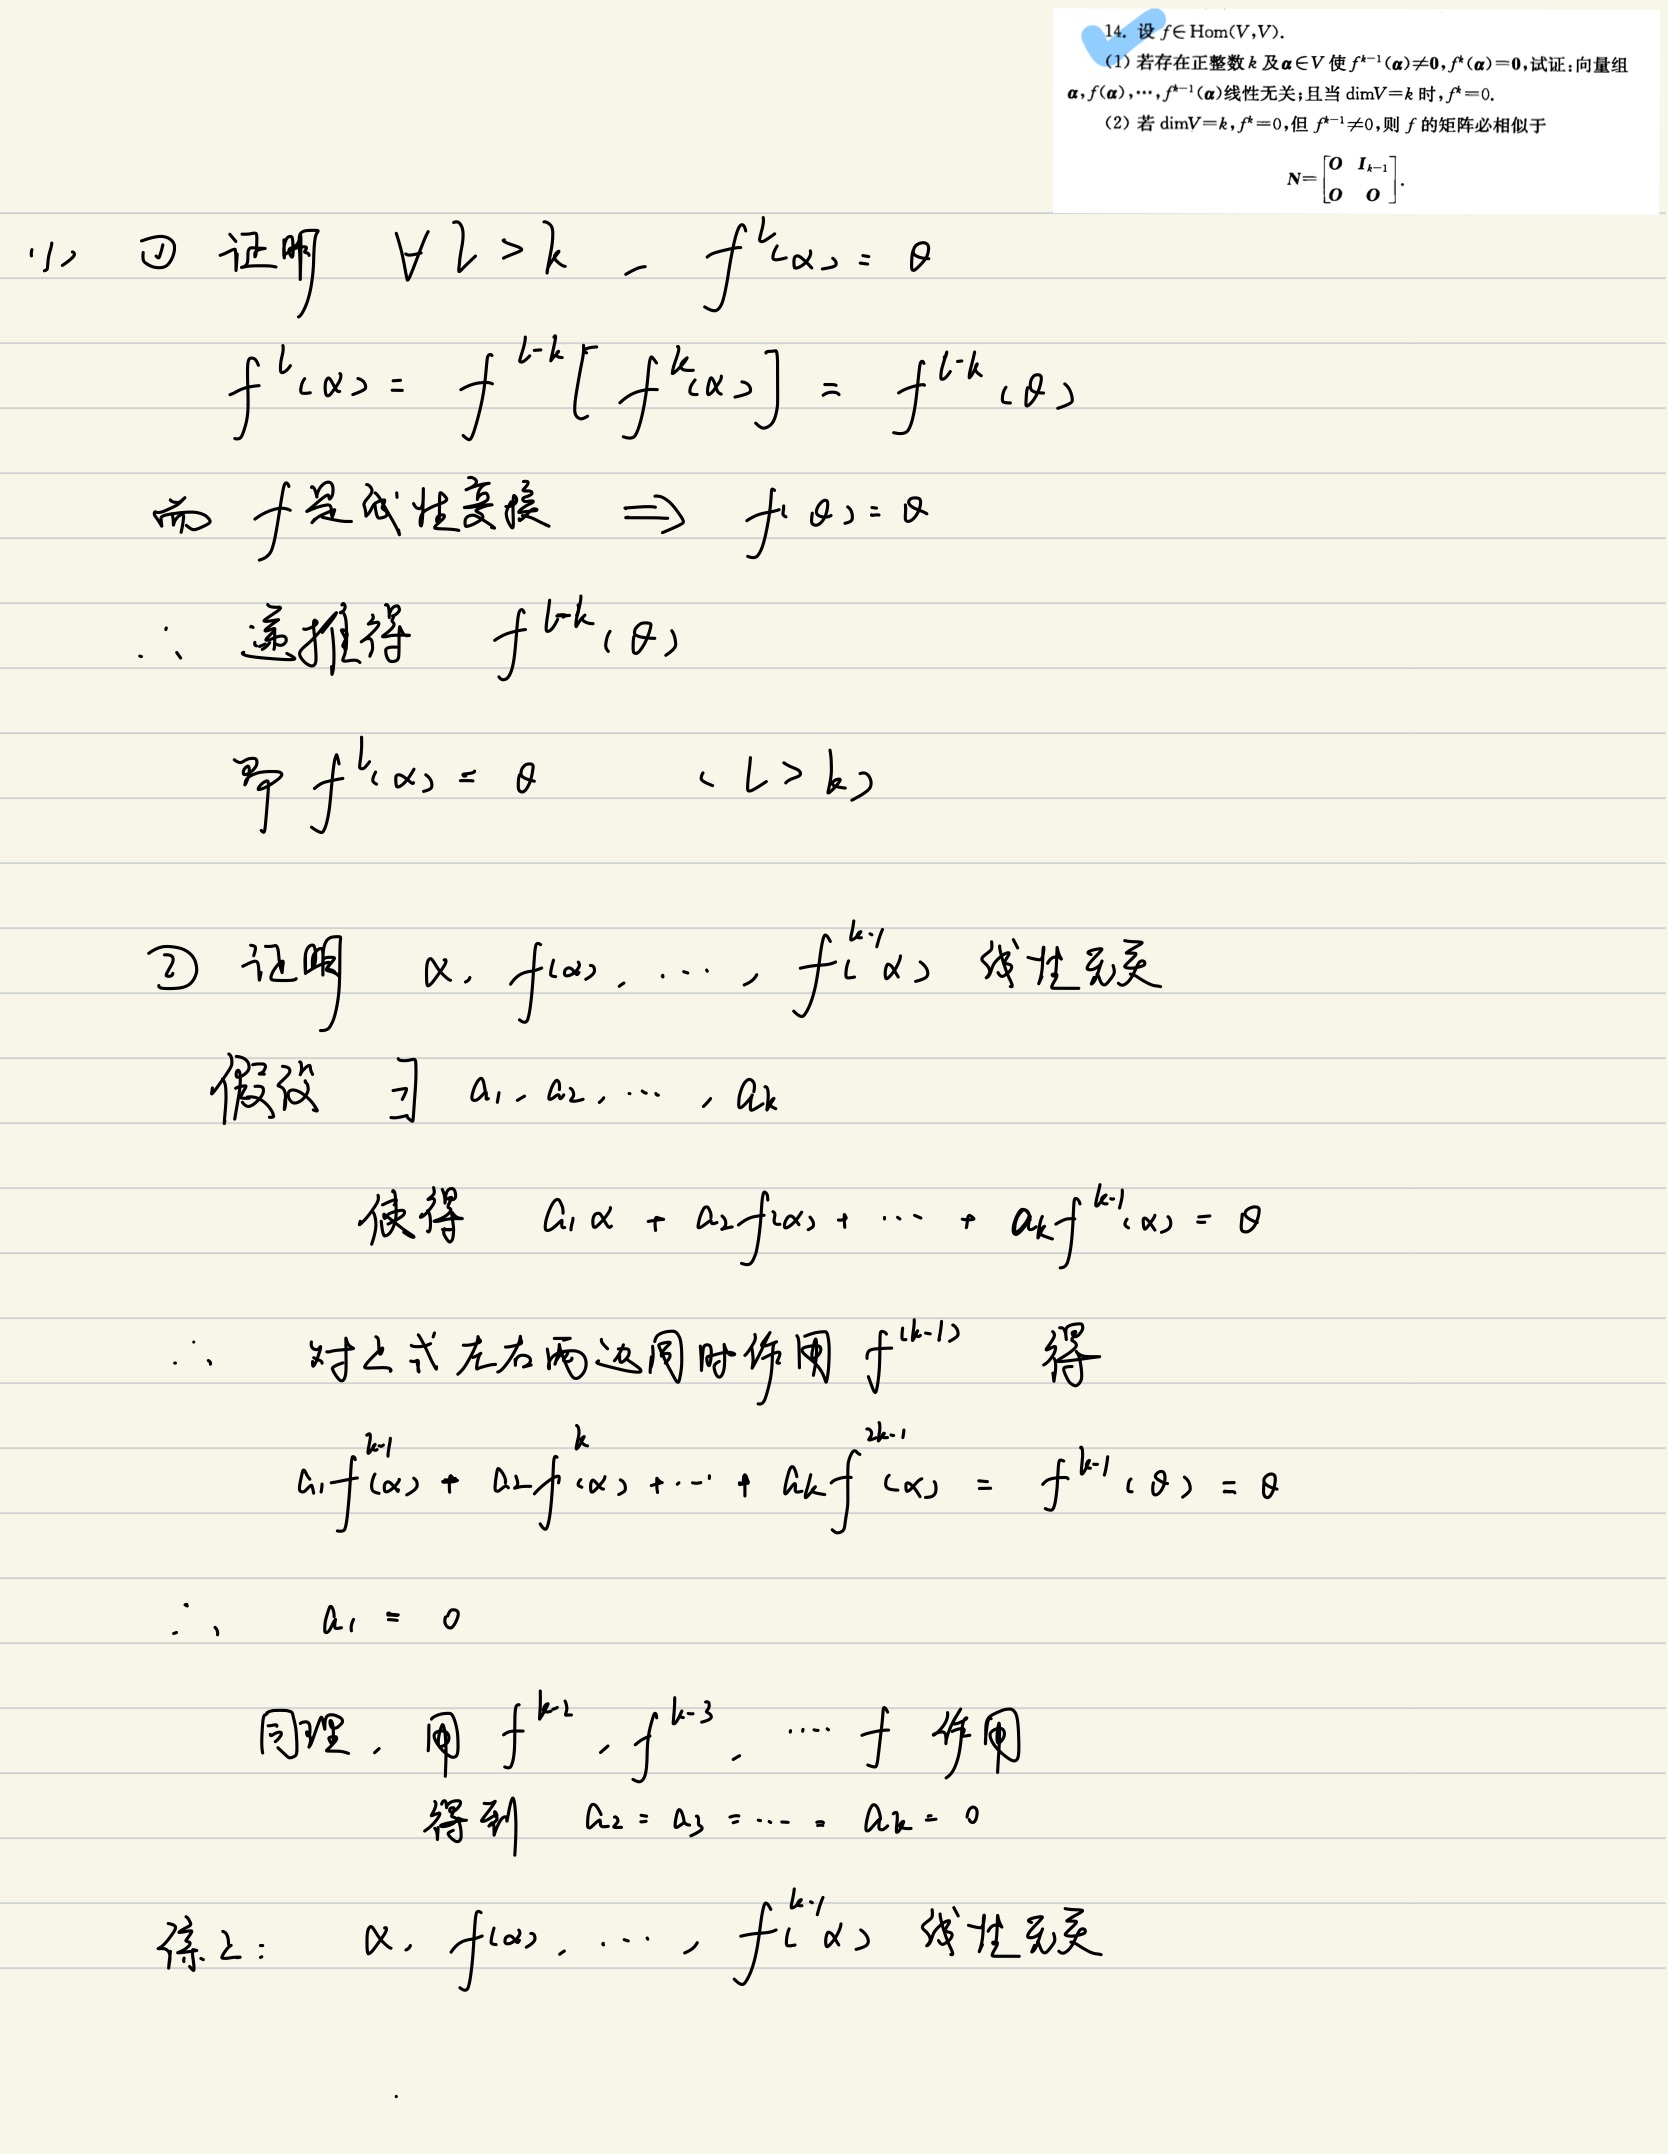 14. 设 f∈Hom(V,V).
(1) 若存在正整数 k 及 α∈V 使 fᵏ⁻¹(α)≠0,fᵏ(α)=0,试证:向量组
α,f(α),⋯,fᵏ⁻¹(α)线性无关;且当 dimV=k 时,fᵏ=0.
(2) 若 dimV=k,fᵏ=0,但 fᵏ⁻¹≠0,则 f 的矩阵必相似于
N=[O Iₖ₋₁
O O].
(1) ① 证明 ∀ l > k , fˡ(α) = θ
fˡ(α) = fˡ⁻ᵏ[fᵏ(α)] = fˡ⁻ᵏ(θ)
而 f是线性变换 ⇒ f(θ) = θ
∴ 递推得 fˡ⁻ᵏ(θ)
即 fˡ(α) = θ (l > k)
② 证明 α, f(α), ⋯, fᵏ⁻¹(α) 线性无关
假设 ∃ a₁, a₂, ⋯, aₖ
使得 a₁α + a₂f(α) + ⋯ + aₖfᵏ⁻¹(α) = θ
∴ 对上式左右两边同时作用 f⁽ᵏ⁻¹⁾ 得
a₁fᵏ⁻¹(α) + a₂fᵏ(α) + ⋯ + aₖf²ᵏ⁻¹(α) = fᵏ⁻¹(θ) = θ
∴ a₁ = 0
同理, 用 fᵏ⁻², fᵏ⁻³, ⋯ f 作用
得到 a₂ = a₃ = ⋯ = aₖ = 0
综上: α, f(α), ⋯, fᵏ⁻¹(α) 线性无关